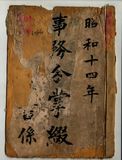 昭和十四年
事務分掌綴
係